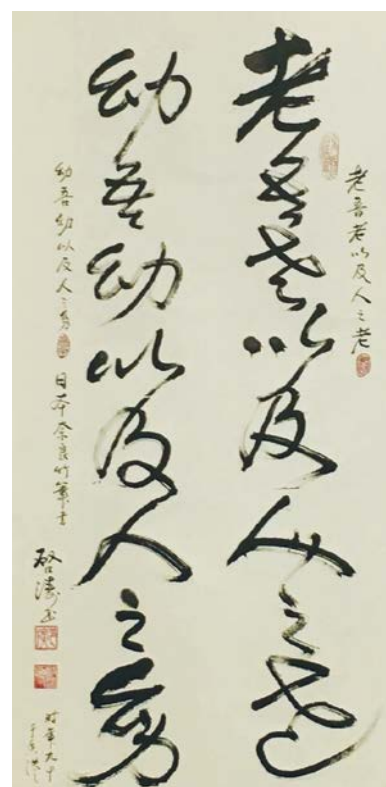 老吾老以及人之老
幼吾幼以及人之幼
老吾老以及人之老
幼吾幼以及人之幼
日本奈良竹筆書
啓濤書